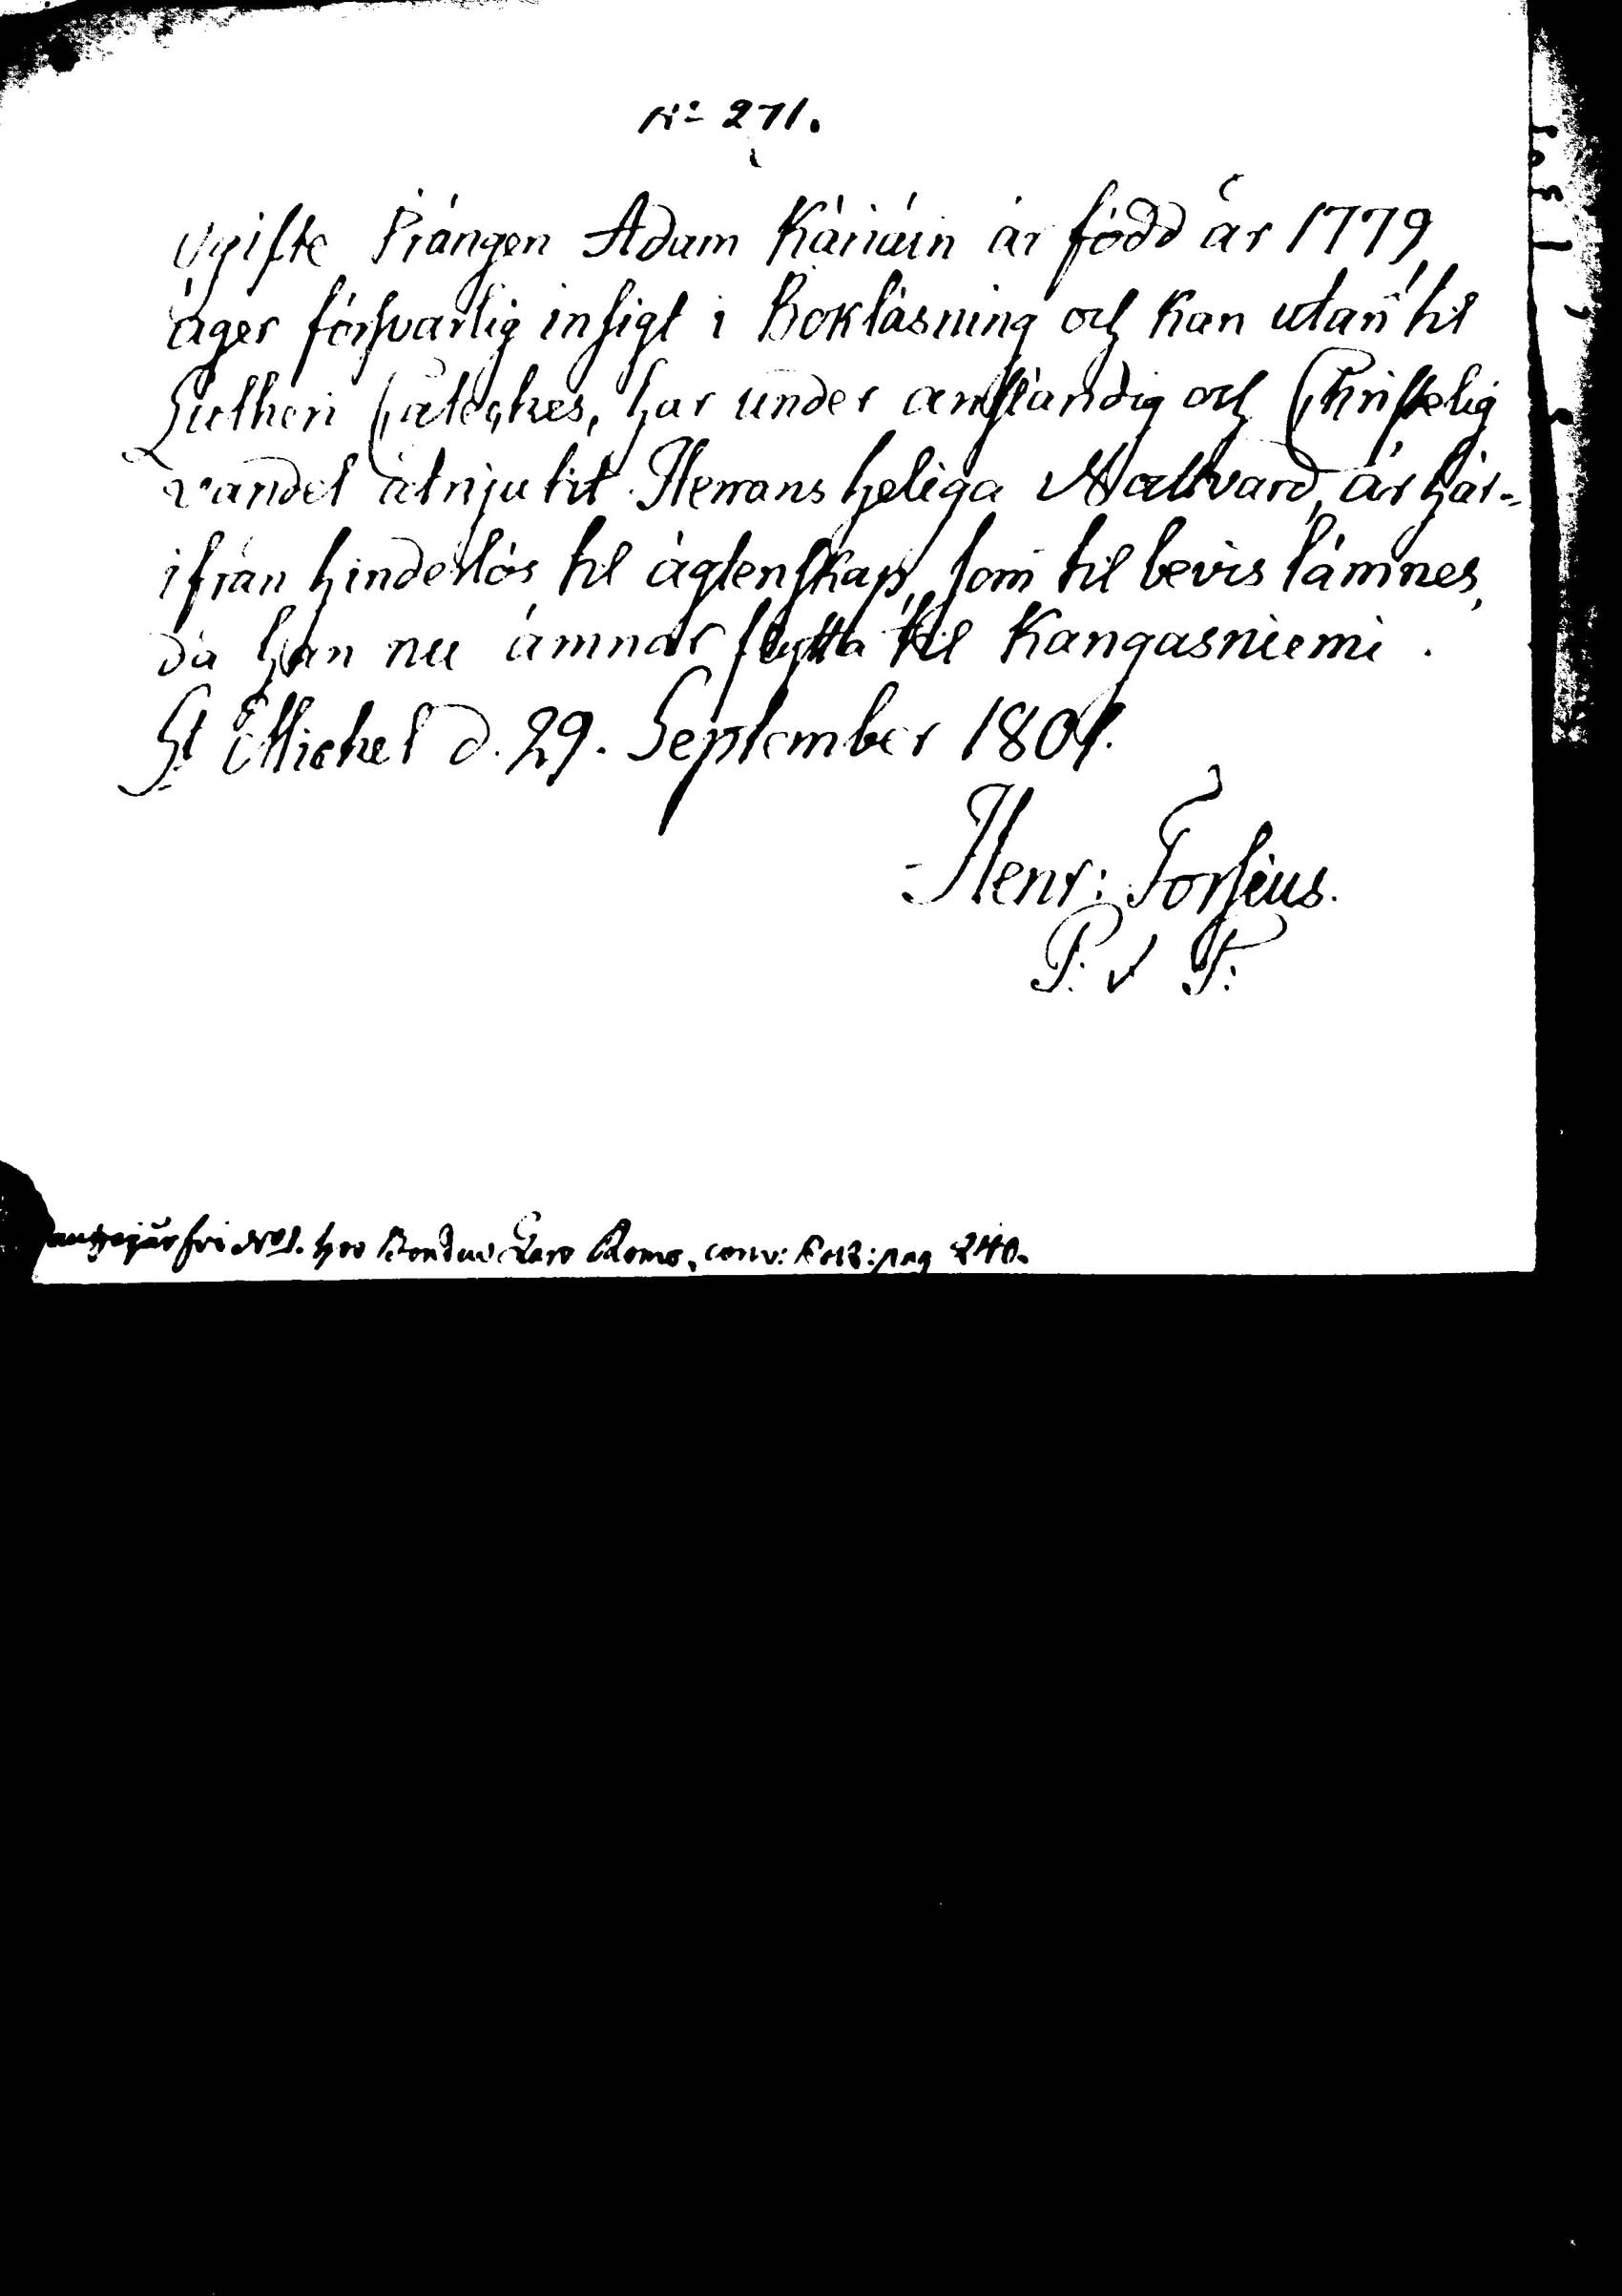 No 271.
Ogifte Drängen Adam Käriäin är född år 1779,
äger försvarlig insigt i Bokläsning och kan utan til
Lutheri Cateches, har under anständig och Christelig
vandel åtnjutit Herrans heliga Nattvard, är här-
ifrån hinderlös til ägtenskap, som til bevis lämnes,
då han nu ämnar flytta til Kangasniemi.
St Michel d. 29. September 1801.
Henr: Forsius.
P. v P:
No 1. hos Bonden Lars Romo, conv: Bok: pag 240.